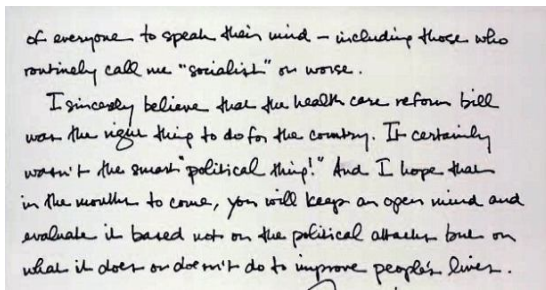 of everyone to speak their mind – including those who
routinely call me "socialist" or worse.
I sincerely believe that the health care reform bill
was the right thing to do for the country. It certainly
wasn't the smart "political thing!" And I hope that
in the months to come, you will keep an open mind and
evaluate it based not on the political attacks but on
what it does or doesn't do to improve people's lives.